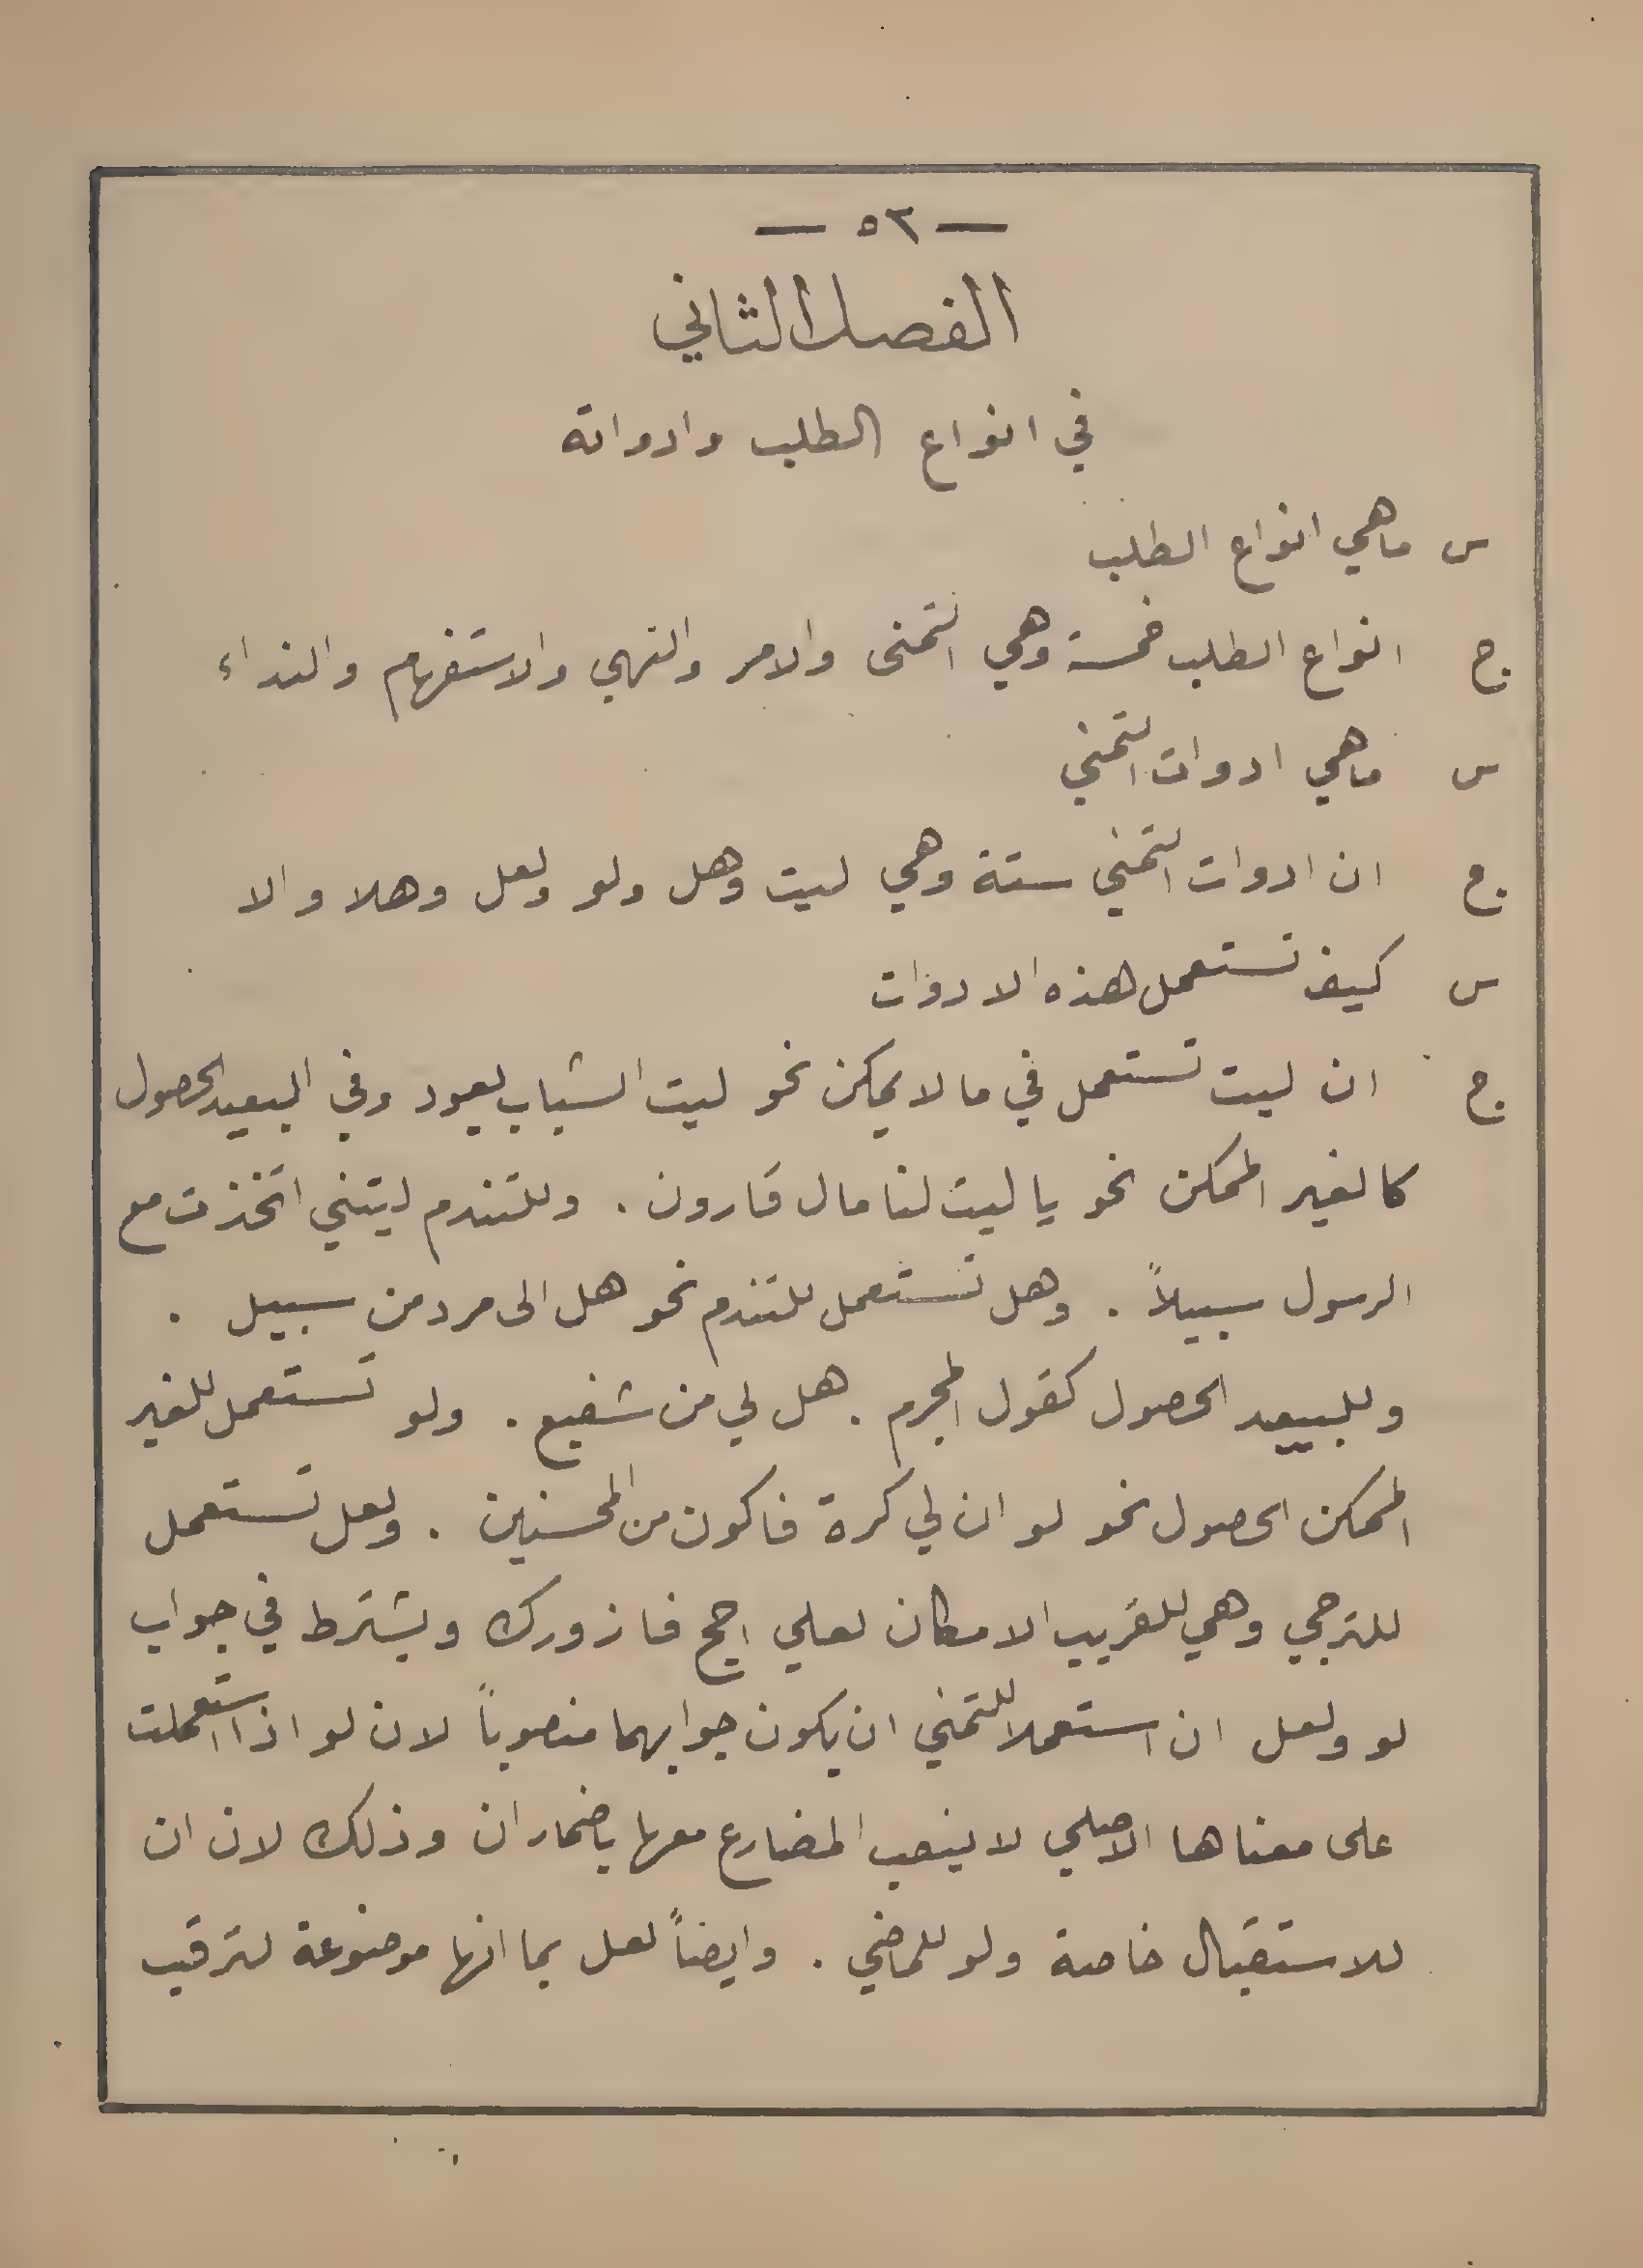 — ٥٣ —
الفصل الثاني
في انواع الطلب وادواته
س ما هي انواع الطلب
ج انواع الطلب خمسة وهي التمنى والامر والنهي والاستفهام والنداء
س ما هي ادوات التمني
ج ان ادوات التمني ستة وهي ليت وهل ولو ولعل وهلا والا
س كيف تستعمل هذه الادوات
ج ان ليت تستعمل في ما لا يمكن نحو ليت الشباب يعود وفي البعيد الحصول
كالغير الممكن نحو يا ليت لنا مال قارون . وللتندم ليتني اتخذت مع
الرسول سبيلاً . وهل تستعمل للتندم نحو هل الى مرد من سبيل .
وللبعيد الحصول كقول المجرم . هل لي من شفيع . ولو تستعمل للغير
الممكن الحصول نحو لو ان لي كرة فاكون من المحسنين . ولعل تستعمل
للترجي وهي للقريب الامكان لعلي احج فازورك ويشترط في جواب
لو ولعل ان استعملا للتمني ان يكون جوابهما منصوباً لان لو اذا استعملت
على معناها الاصلي لا ينصب المضارع معها باضمار ان وذلك لان ان
للاستقبال خاصة ولو للماضي . وايضاً لعل بما انها موضوعة لترقب